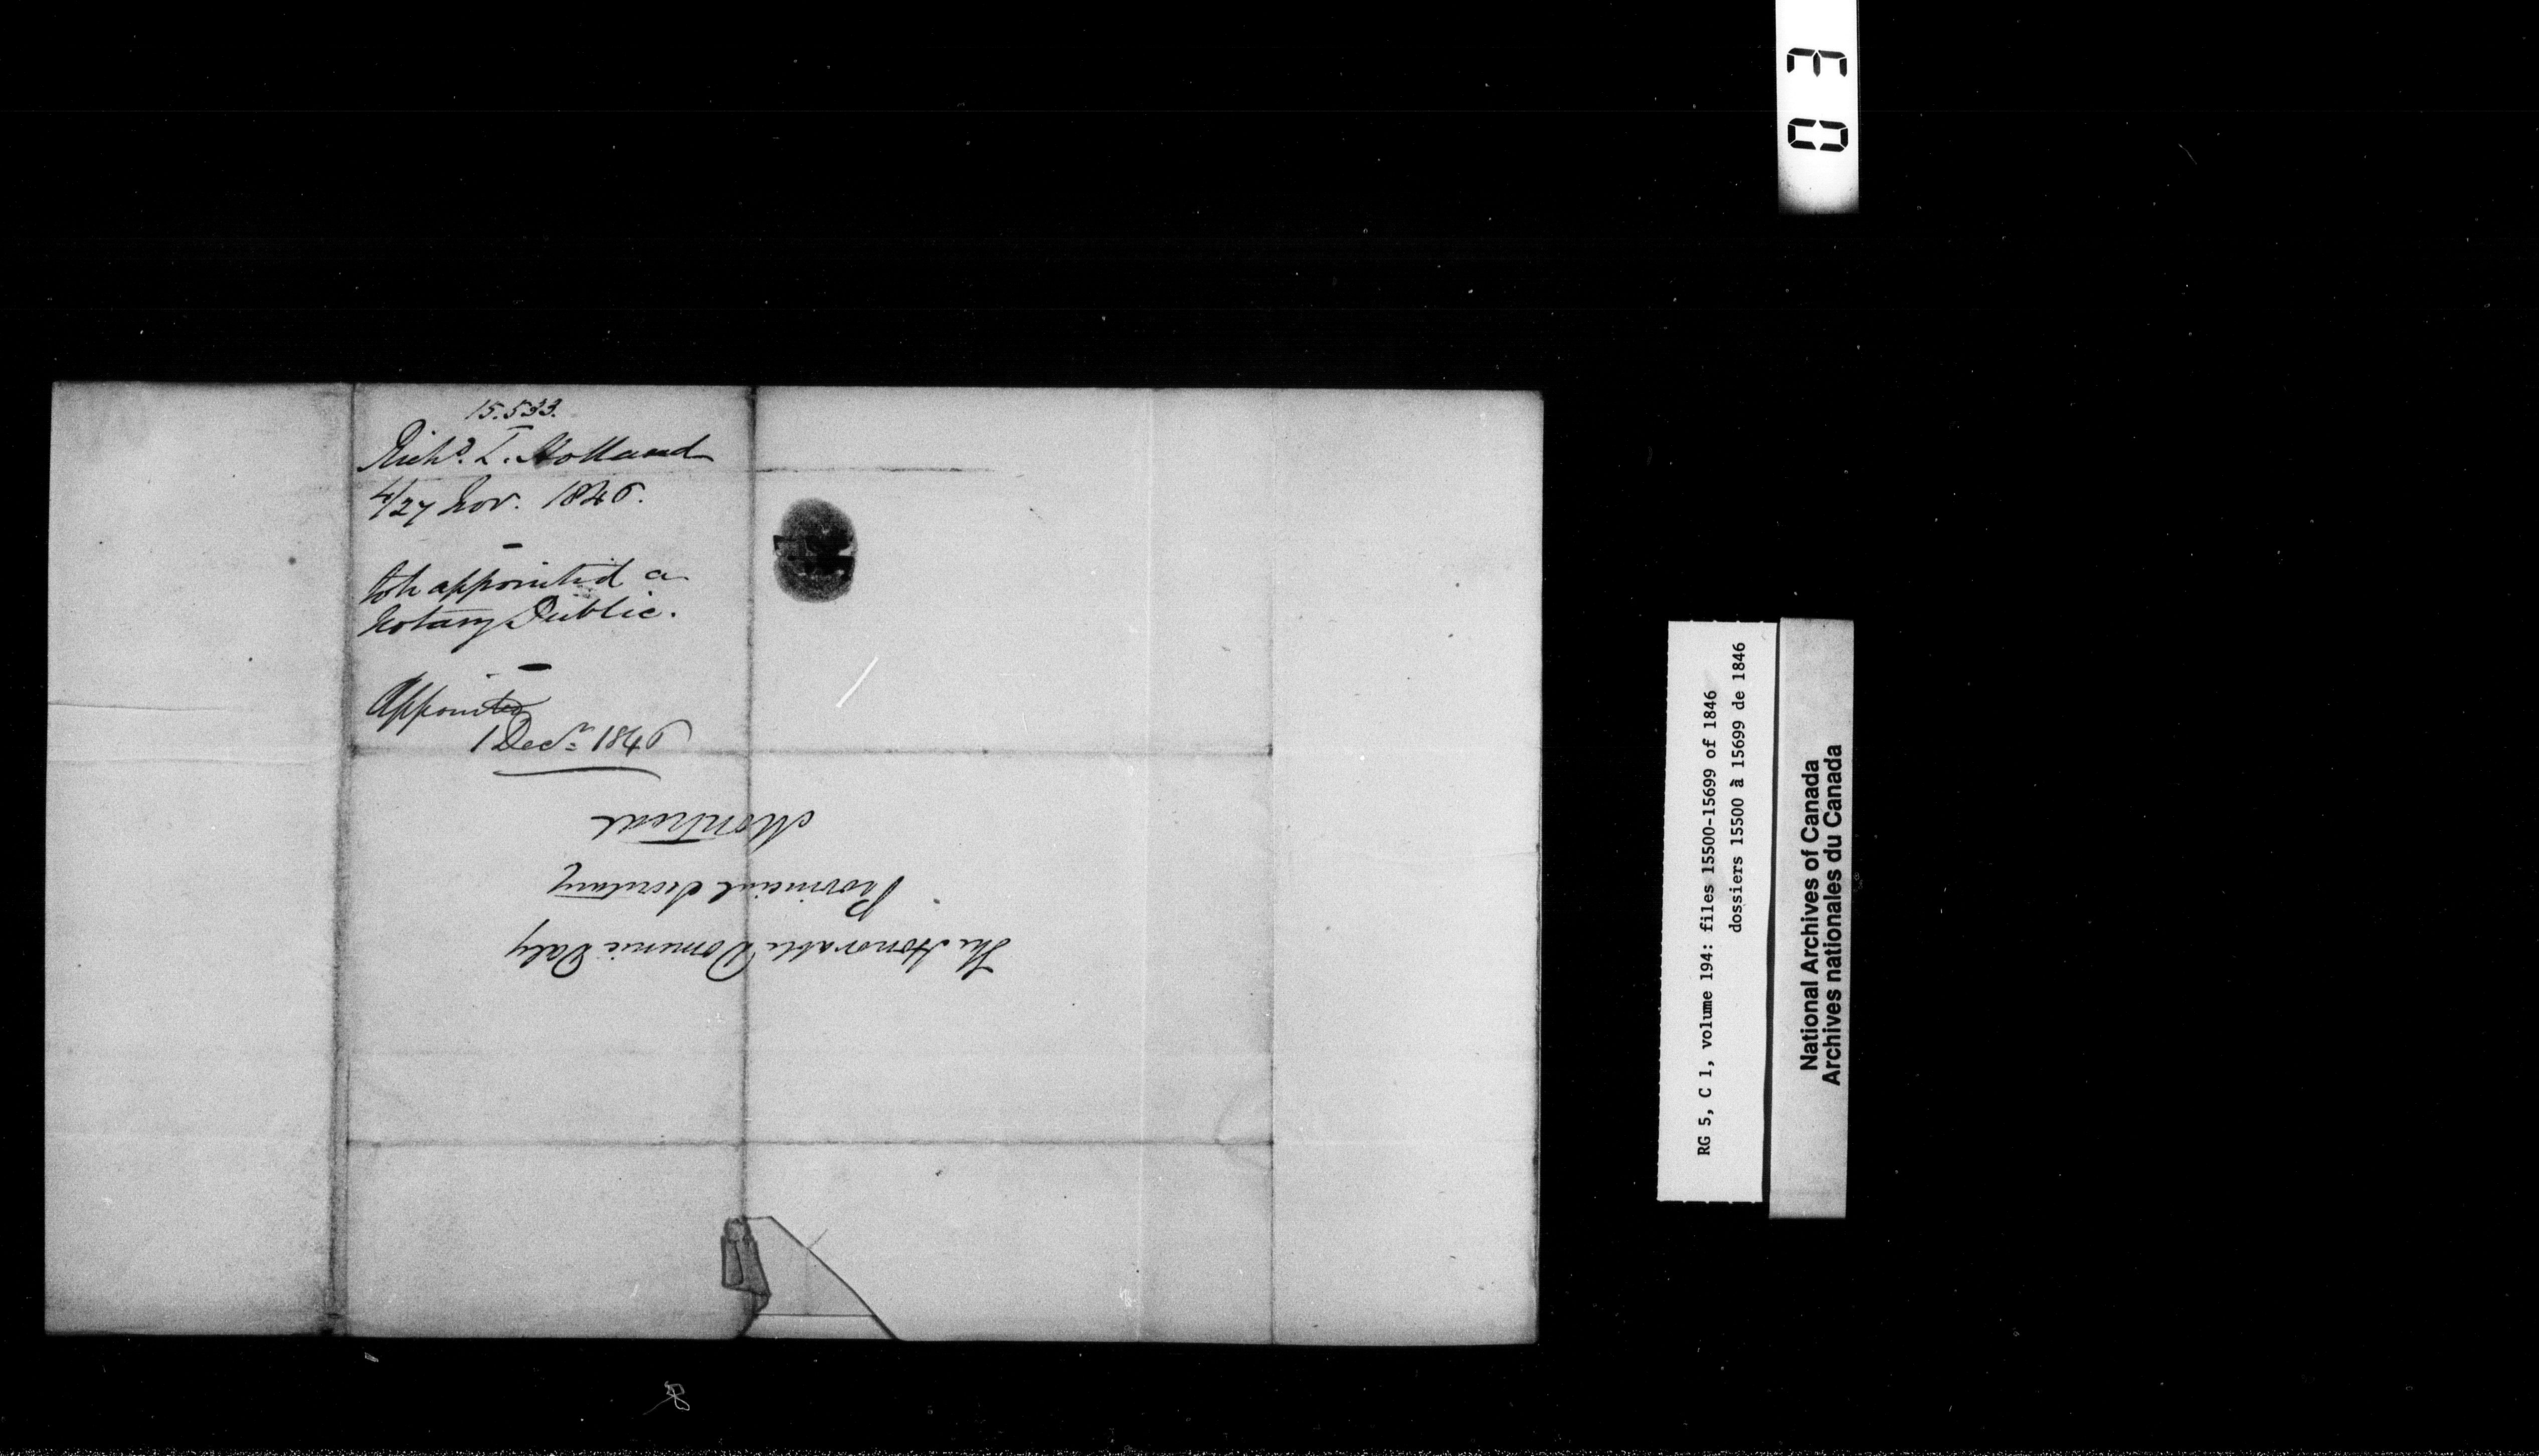 15.533.
Richd. T. Holland
4/27 Nov. 1846.
to be appointed a
Notary Public.
Appointed
1 Decr. 1846
The Honorable Dominic Daly
Provincial Secretary
Montreal
03
RG 5, C 1, volume 194: files 15500-15699 of 1846
dossiers 15500 à 15699 de 1846
National Archives of Canada
Archives nationales du Canada